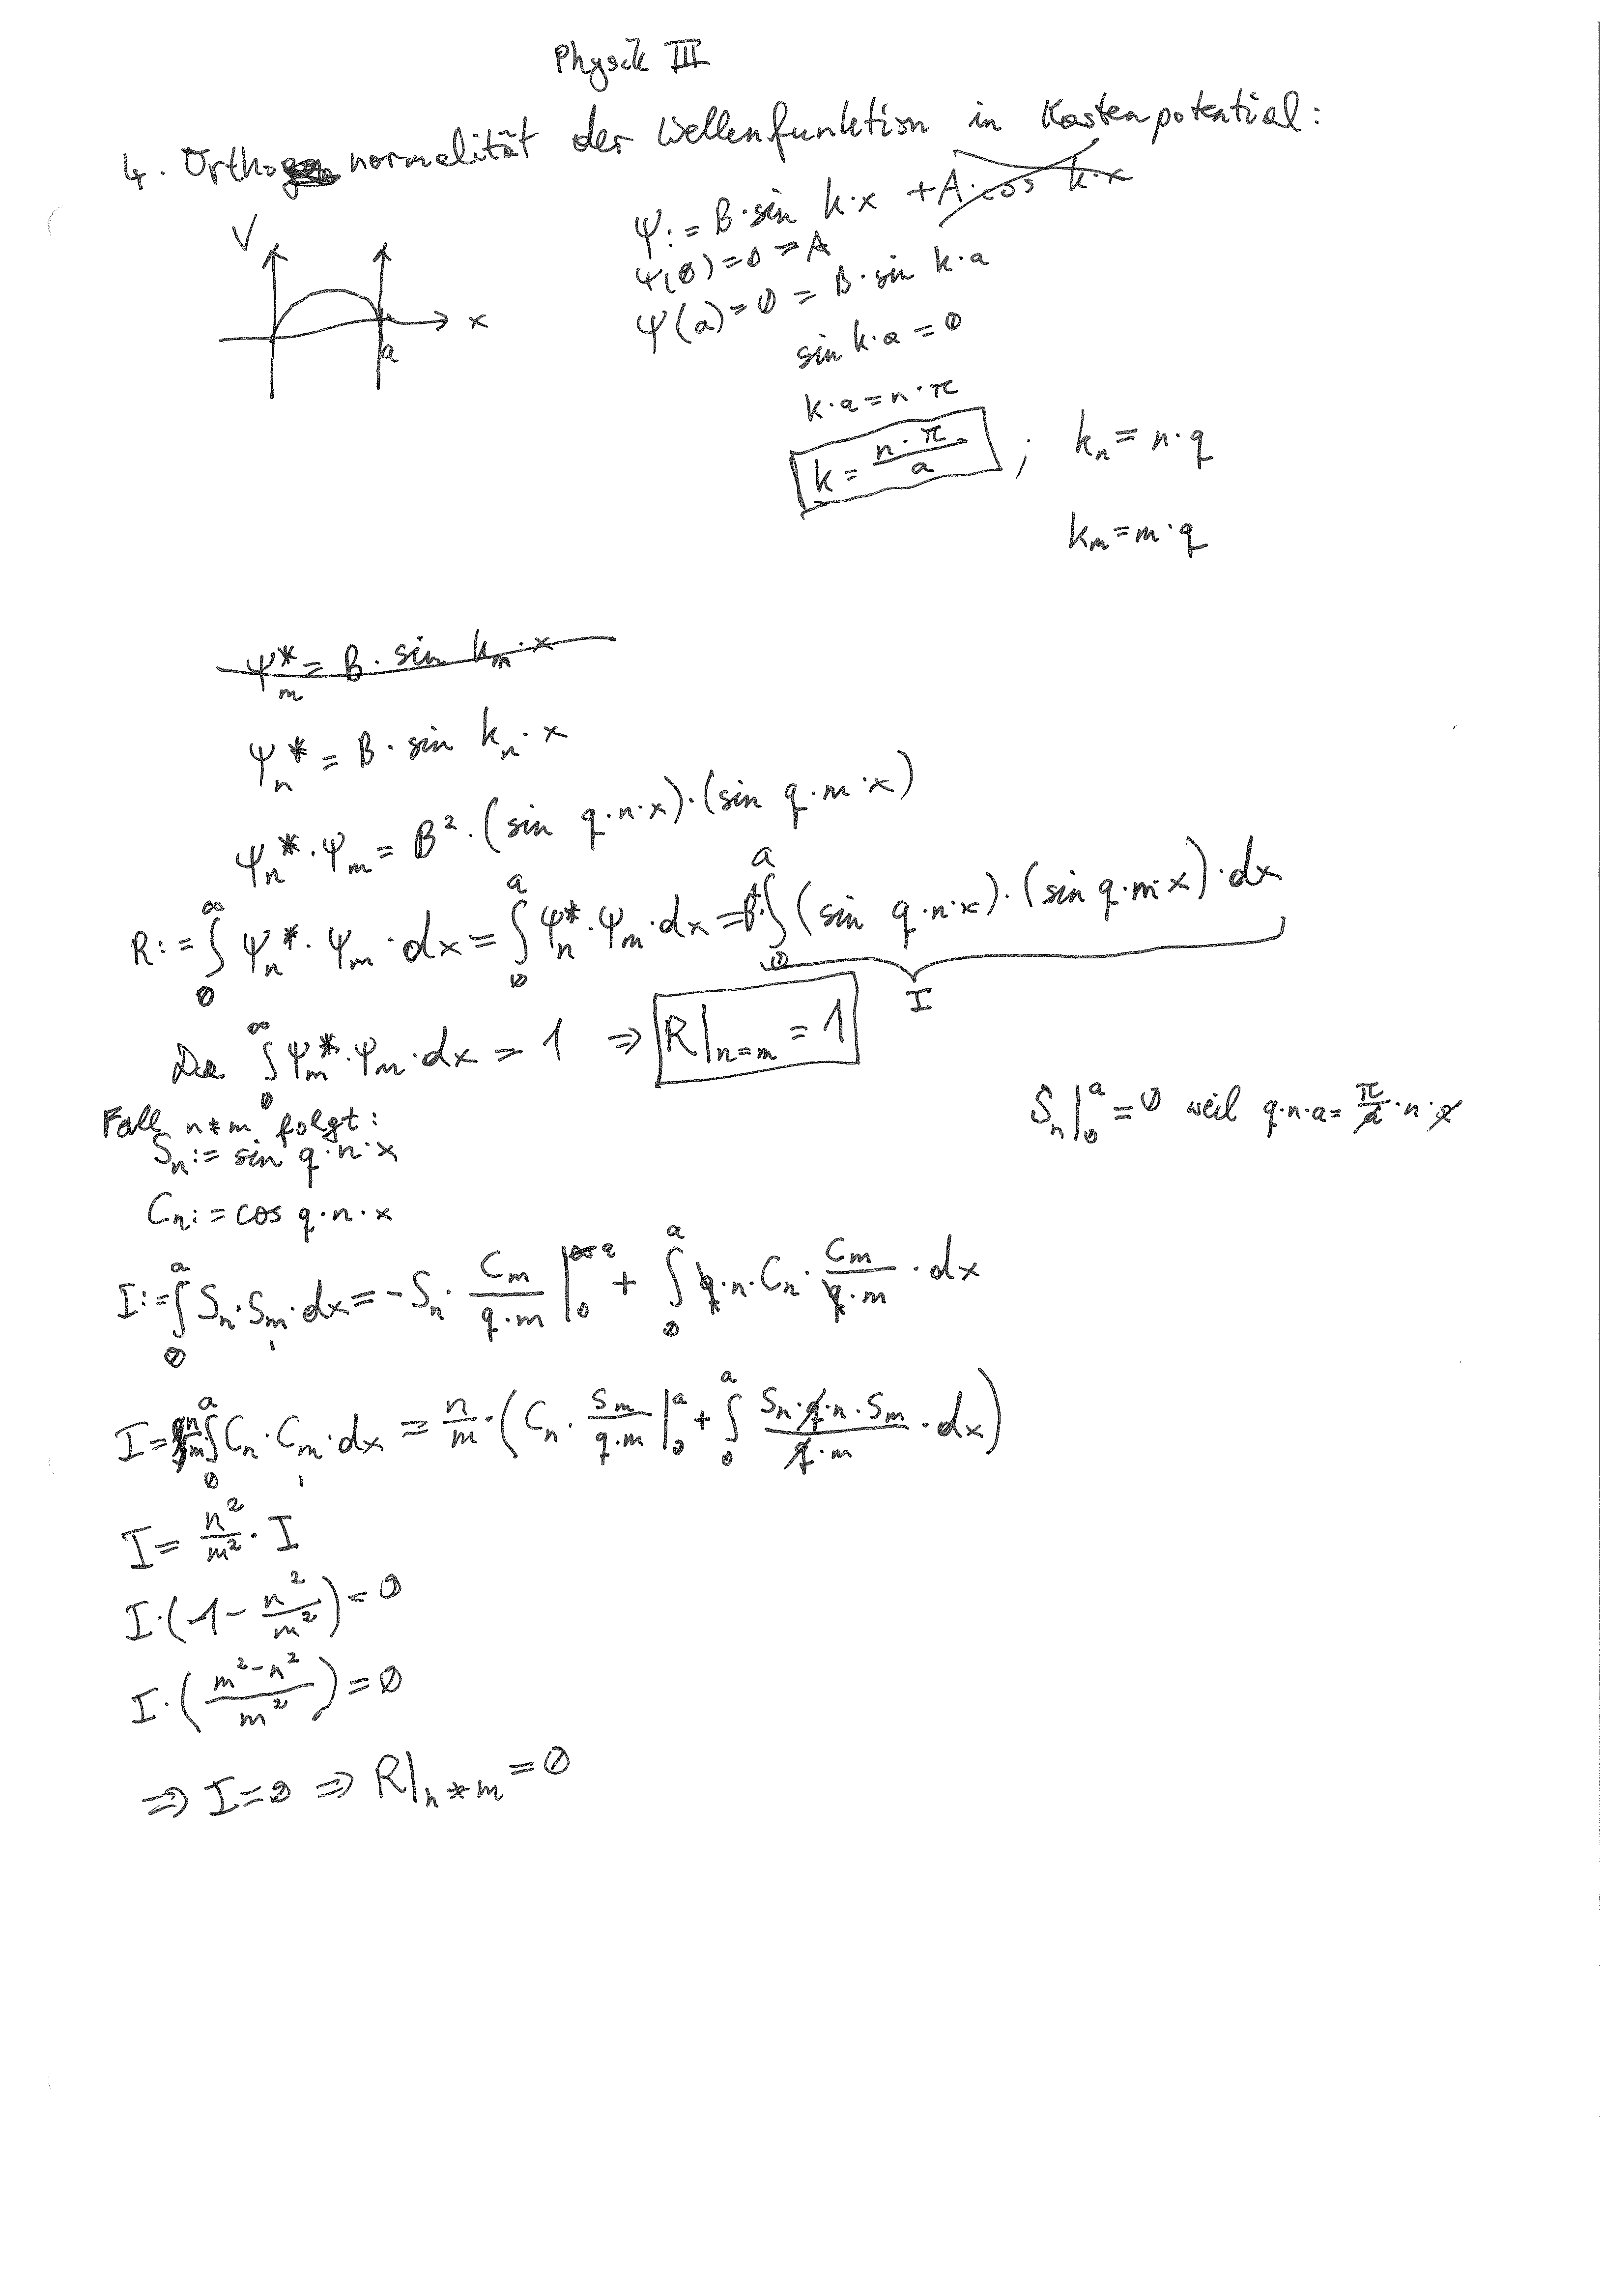 Physik III
4. Orthonormalität der Wellenfunktion in Kastenpotential:
V
x
a
Ψ:= B·sin k·x + A·cos k·x
Ψ(0)=0=A
Ψ(a)=0 = B·sin k·a
sin k·a = 0
k·a = n·π
k = n·π/a ; kₙ = n·q
kₘ = m·q
Ψₘ* = B·sin kₘ·x
Ψₙ* = B·sin kₙ·x
Ψₙ*·Ψₘ = B²·(sin q·n·x)·(sin q·m·x)
R:= ∫₀^∞ Ψₙ*·Ψₘ·dx = ∫₀^a Ψₙ*·Ψₘ·dx = B²·∫₀^a (sin q·n·x)·(sin q·m·x)·dx
I
Da ∫₀^∞ Ψₘ*·Ψₘ·dx = 1 ⇒ R|ₙ₌ₘ = 1
Sₙ|₀^a = 0 weil q·n·a = π/a·n·a
Fall n≠m folgt:
Sₙ:= sin q·n·x
Cₙ:= cos q·n·x
I:= ∫₀^a Sₙ·Sₘ·dx = -Sₙ· Cₘ/(q·m) |₀^a + ∫₀^a q·n·Cₙ· Cₘ/(q·m) ·dx
I = n/m ∫₀^a Cₙ·Cₘ·dx = n/m·(Cₙ· Sₘ/(q·m) |₀^a + ∫₀^a (Sₙ·q·n·Sₘ)/(q·m) ·dx)
I = n²/m² · I
I·(1 - n²/m²) = 0
I·((m²-n²)/m²) = 0
⇒ I=0 ⇒ R|ₙ≠ₘ = 0